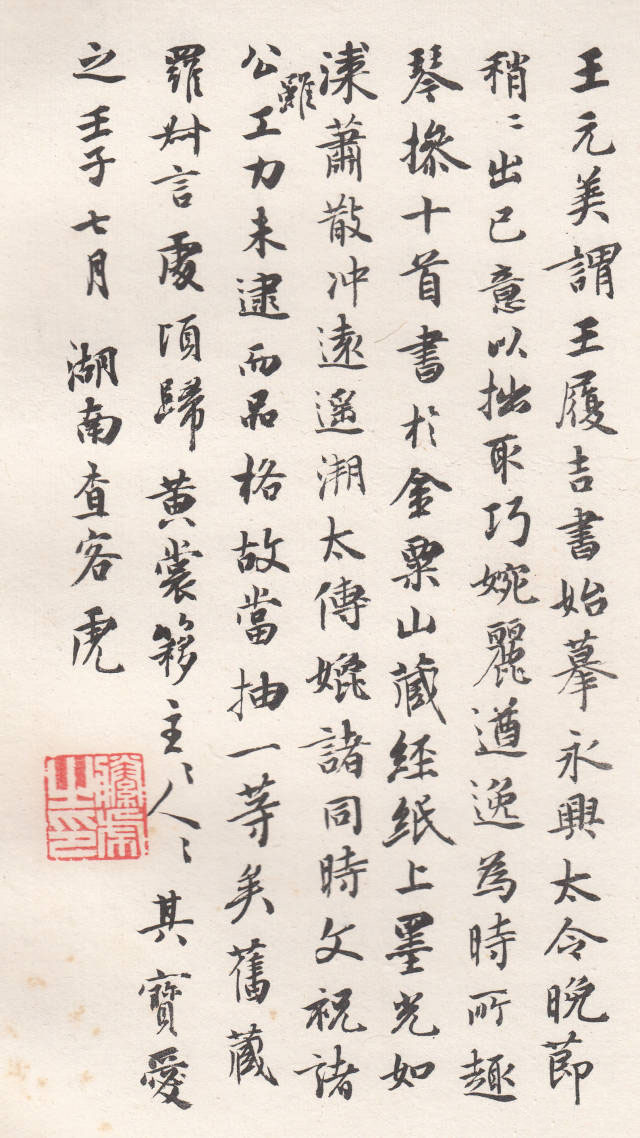 王元美謂王履吉書始摹永興太令晚節
稍〻出己意以拙取巧婉麗遒逸為時所趣
琴操十首書於金粟山藏經紙上墨光如
漆蕭散冲遠遥溯太傅媲諸同時文祝諸
公雖工力未逮而品格故當抽一等矣舊藏
羅艸言處頃歸黃裳簃主〻人〻其寶愛
之壬子七月湖南查客虎